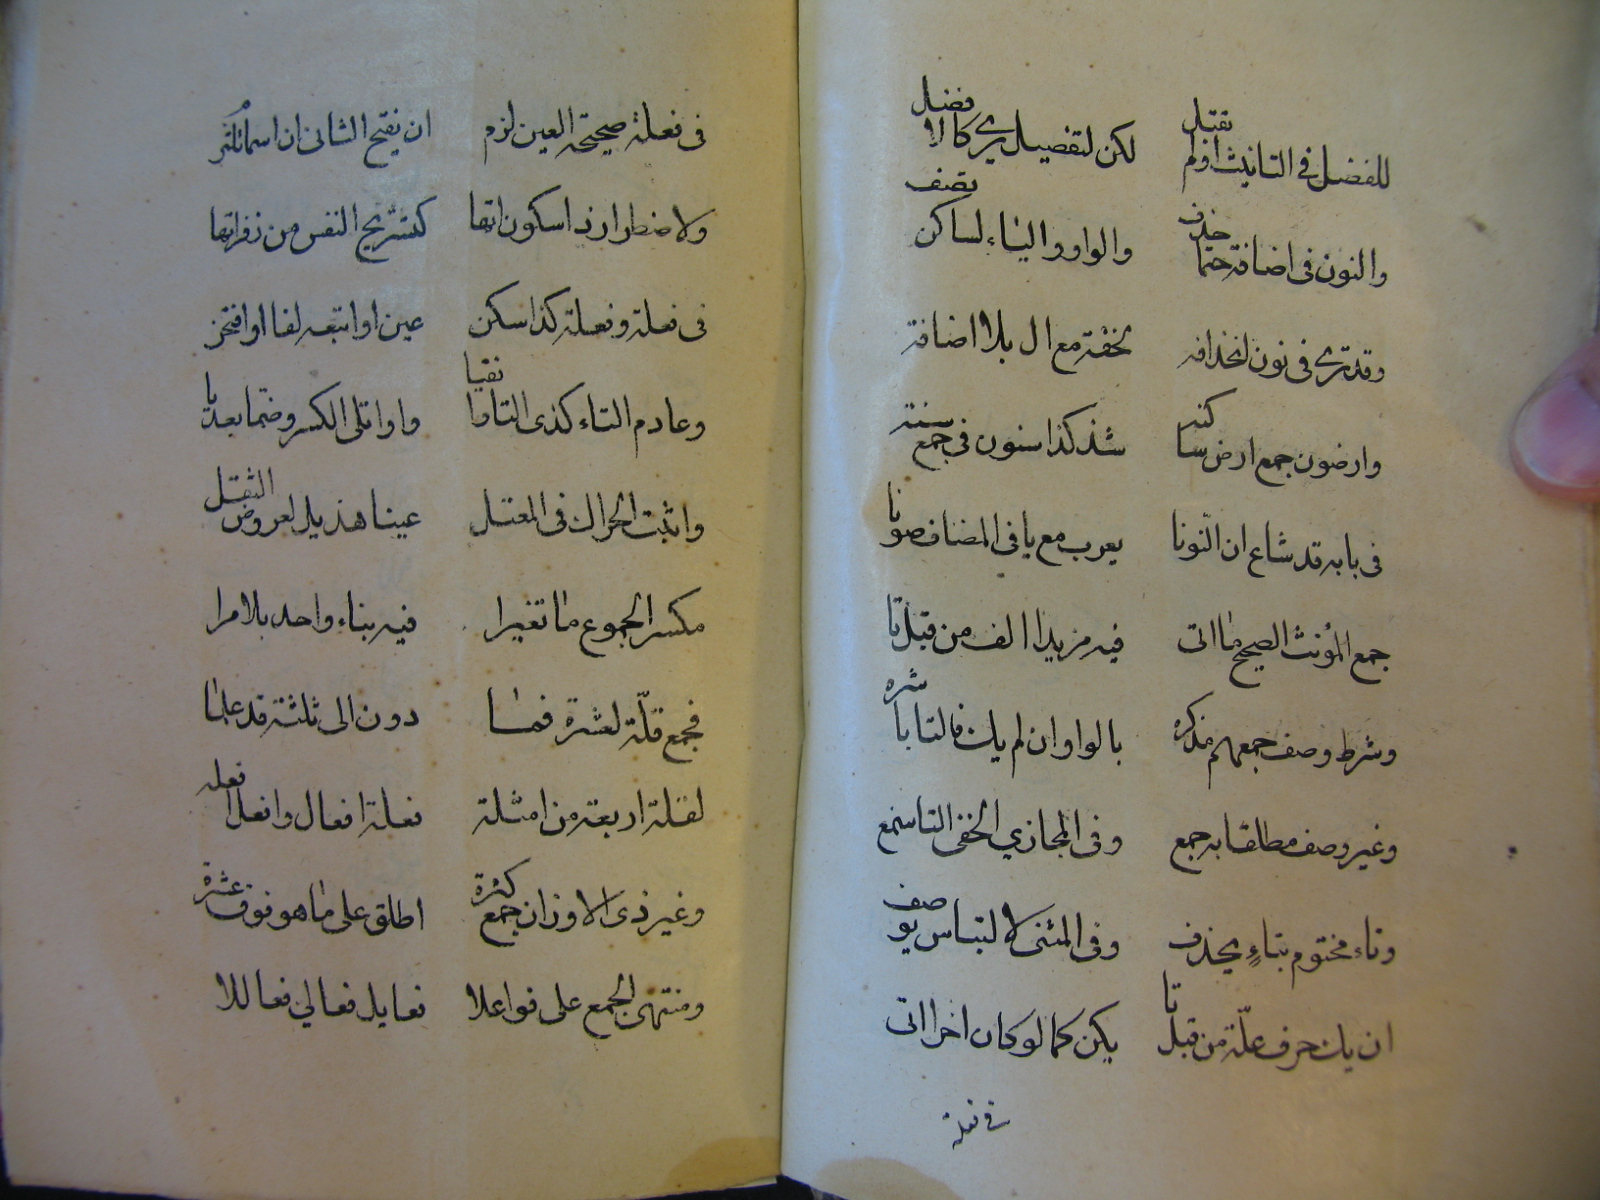 للفضل في التانيث او لم تقتل لكن لتفضيل يرى كالافضل
والنون في اضافة حتما حذف والواو والياء لساكن تصف
وقد ترى في نون لحذافه لخفة مع ال بلا اضافة
وارضون جمع ارض ساكنه شذ كذا سنون في جمع سنة
في بابه قد شاع ان النونا يعرب مع يا في المضاف صونا
جمع المؤنث الصحيح ما اتى فيه مزيدا الف من قبل تا
وشرط وصف جمعهم مذكره بالواو وان لم يك فالتا باشره
وغير وصف مطلقا به جمع وفي المجازي الخفي التا سمع
وتاء مختوم بتاء يحذف وفي المثنى لالتباس يوصف
ان يك حرف علة من قبل تا يكن كما لو كان اخرا اتى
في فعلة
في فعلة صحيحة العين لزم ان يفتح الثاني ان اسما
ولاضطرار ذا سكون اتها كتستريح النفس من زفراتها
في فعلة وفعلة كذا سكن عين او اتبعه لفا او افتحن
وعادم التاء كذى التا وانقيا واوا تلى الكسر وضما بعد يا
واثبت الحراك في المعتل عينا هذيل لعروض الثقل
مكسر الجموع ما تغيرا فيه بناء واحد بلا مرا
فجمع قلة لعشرة فما دون الى ثلثة قد علما
لقلة اربعة من امثلة فعلة افعال وافعل افعله
وغير ذى الاوزان جمع كثرة اطلق على ما هو فوق عشرة
ومنتهى الجمع على فواعلا فعايل فعالي فعاللا